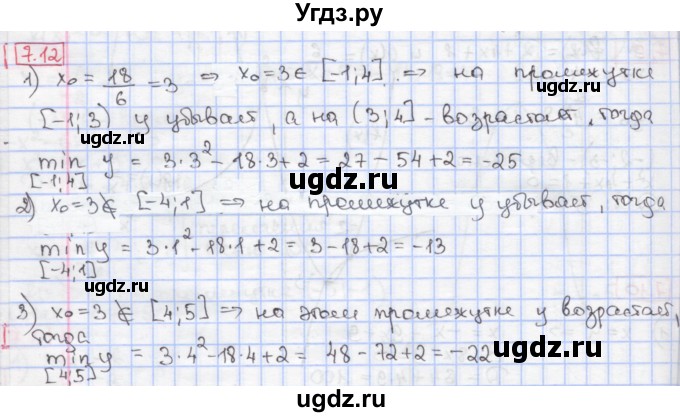 Угдз.ру
7.12
1) x₀ = 18/6 = 3 ⇒ x₀ = 3 ∈ [-1; 4] ⇒ на промежутке
[-1; 3) у убывает, а на (3; 4] - возрастает, тогда
min y = 3·3² - 18·3 + 2 = 27 - 54 + 2 = -25
[-1; 4]
ugdz.ru
ugdz.ru
2) x₀ = 3 ∉ [-4; 1] ⇒ на промежутке у убывает, тогда
min y = 3·1² - 18·1 + 2 = 3 - 18 + 2 = -13
[-4; 1]
ugdz.ru
ugdz.ru
3) x₀ = 3 ∉ [4; 5] ⇒ на этом промежутке у возрастает,
тогда
min y = 3·4² - 18·4 + 2 = 48 - 72 + 2 = -22
[4; 5]
ugdz.ru
ugdz.ru